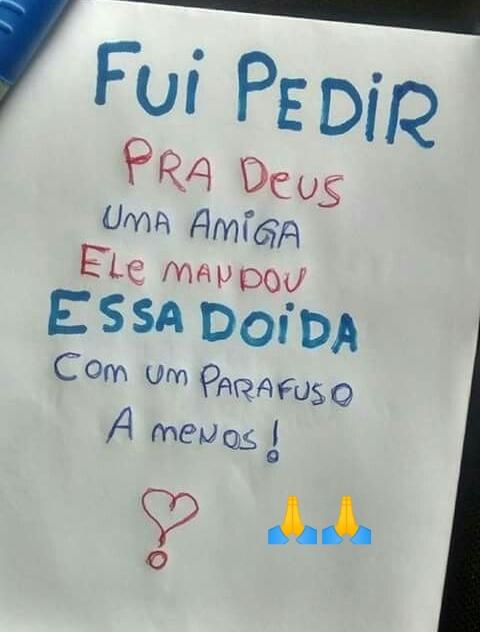 FUi PEDiR
PRA DeUS
UMA AMiGA
ELe MANDOU
ESSA DOiDA
COM UM PARAFUSO
A MENOS!